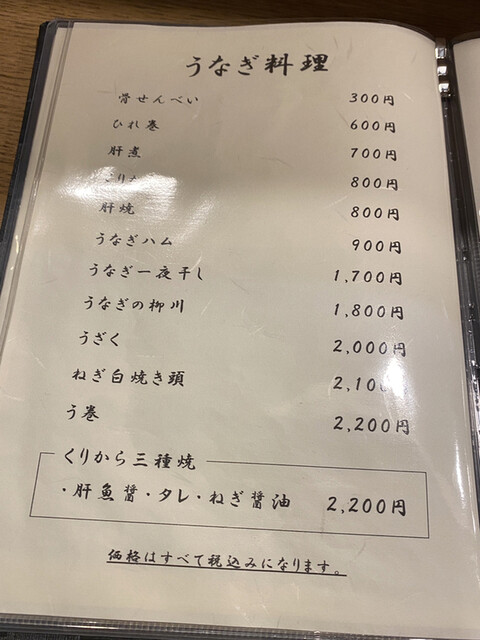 うなぎ料理
骨せんべい 300円
ひれ巻 600円
肝煮 700円
800円
肝焼 800円
うなぎハム 900円
うなぎ一夜干し 1,700円
うなぎの柳川 1,800円
うざく 2,000円
ねぎ白焼き頭
う巻 2,200円
くりから三種焼
・肝魚醤・タレ・ねぎ醤油 2,200円
価格はすべて税込みになります。